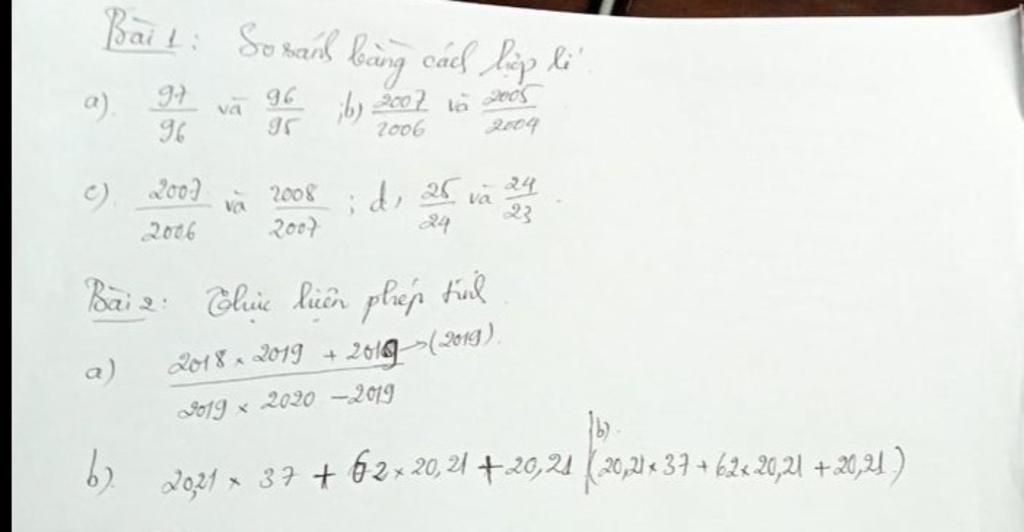 Bài 1: So sánh bằng cách hợp lí.
a). 97/96 và 96/95 ; b) 2007/2006 và 2005/2004
c). 2007/2006 và 2008/2007 ; d, 25/24 và 24/23.
Bài 2: Thực hiện phép tính.
a) (2018 × 2019 + 2019)/(2019 × 2020 - 2019) → (2019).
b). 20,21 × 37 + 62 × 20,21 + 20,21 b). (20,21 × 37 + 62 × 20,21 + 20,21)